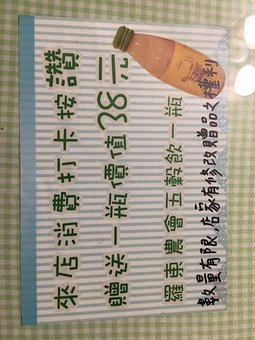 來店消費打卡按讚
贈送一瓶價值38元
羅東農會五穀飲一瓶
數量有限,店家有修改贈品之權利